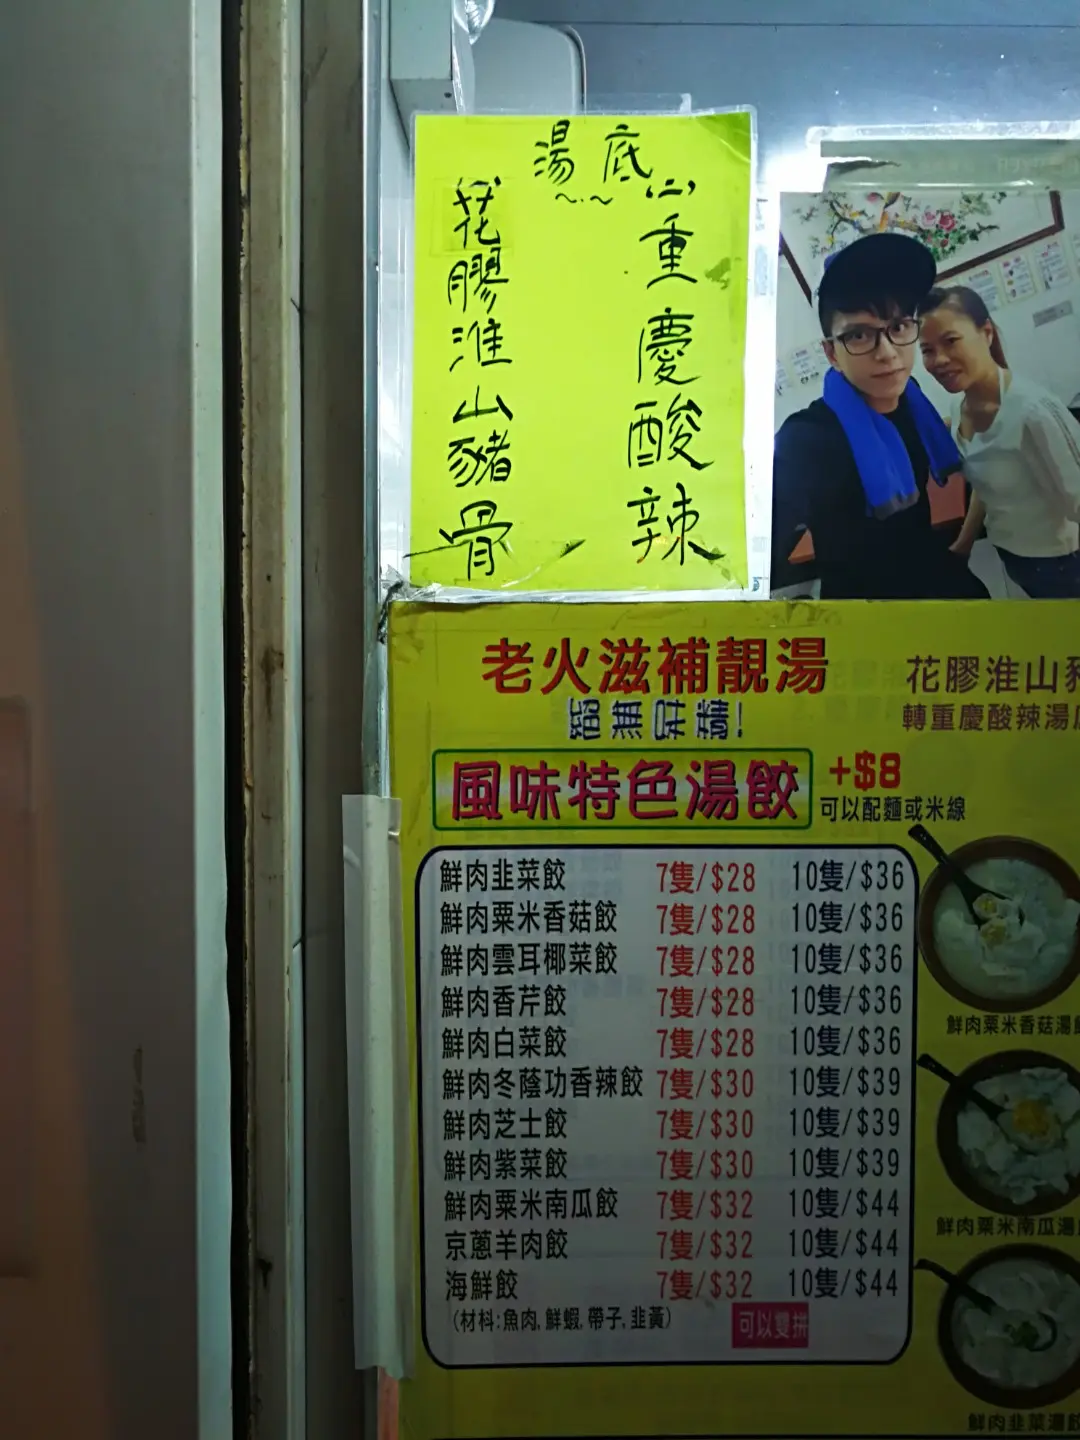 湯底
重慶酸辣
花膠淮山豬骨
老火滋補靚湯
絕無味精!
花膠淮山
轉重慶酸辣湯
風味特色湯餃
+$8
可以配麵或米線
鮮肉韭菜餃 7隻/$28 10隻/$36
鮮肉粟米香菇餃 7隻/$28 10隻/$36
鮮肉雲耳椰菜餃 7隻/$28 10隻/$36
鮮肉香芹餃 7隻/$28 10隻/$36
鮮肉白菜餃 7隻/$28 10隻/$36
鮮肉冬蔭功香辣餃 7隻/$30 10隻/$39
鮮肉芝士餃 7隻/$30 10隻/$39
鮮肉紫菜餃 7隻/$30 10隻/$39
鮮肉粟米南瓜餃 7隻/$32 10隻/$44
京蔥羊肉餃 7隻/$32 10隻/$44
海鮮餃 7隻/$32 10隻/$44
(材料:魚肉,鮮蝦,帶子,韭黃)
可以雙拼
鮮肉粟米香菇湯餃
鮮肉粟米南瓜湯
鮮肉韭菜湯餃